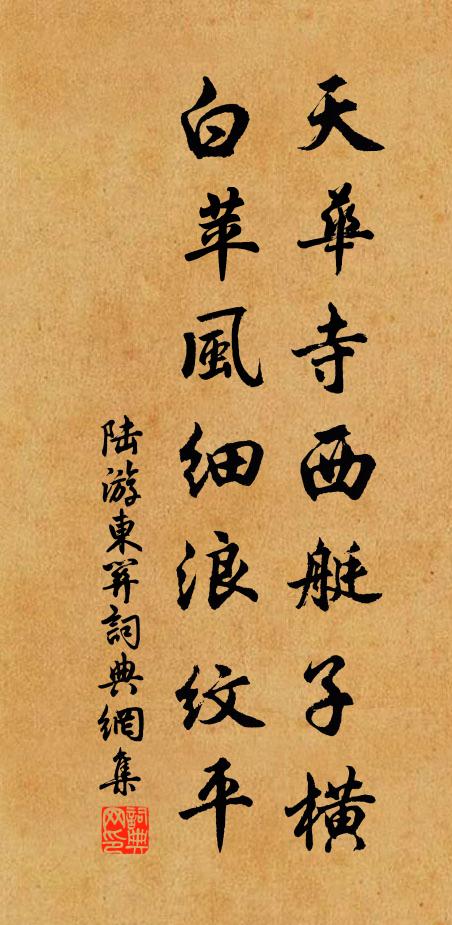 天華寺西艇子橫
白苹風細浪紋平
陸游東關詞典網集
詞典网印